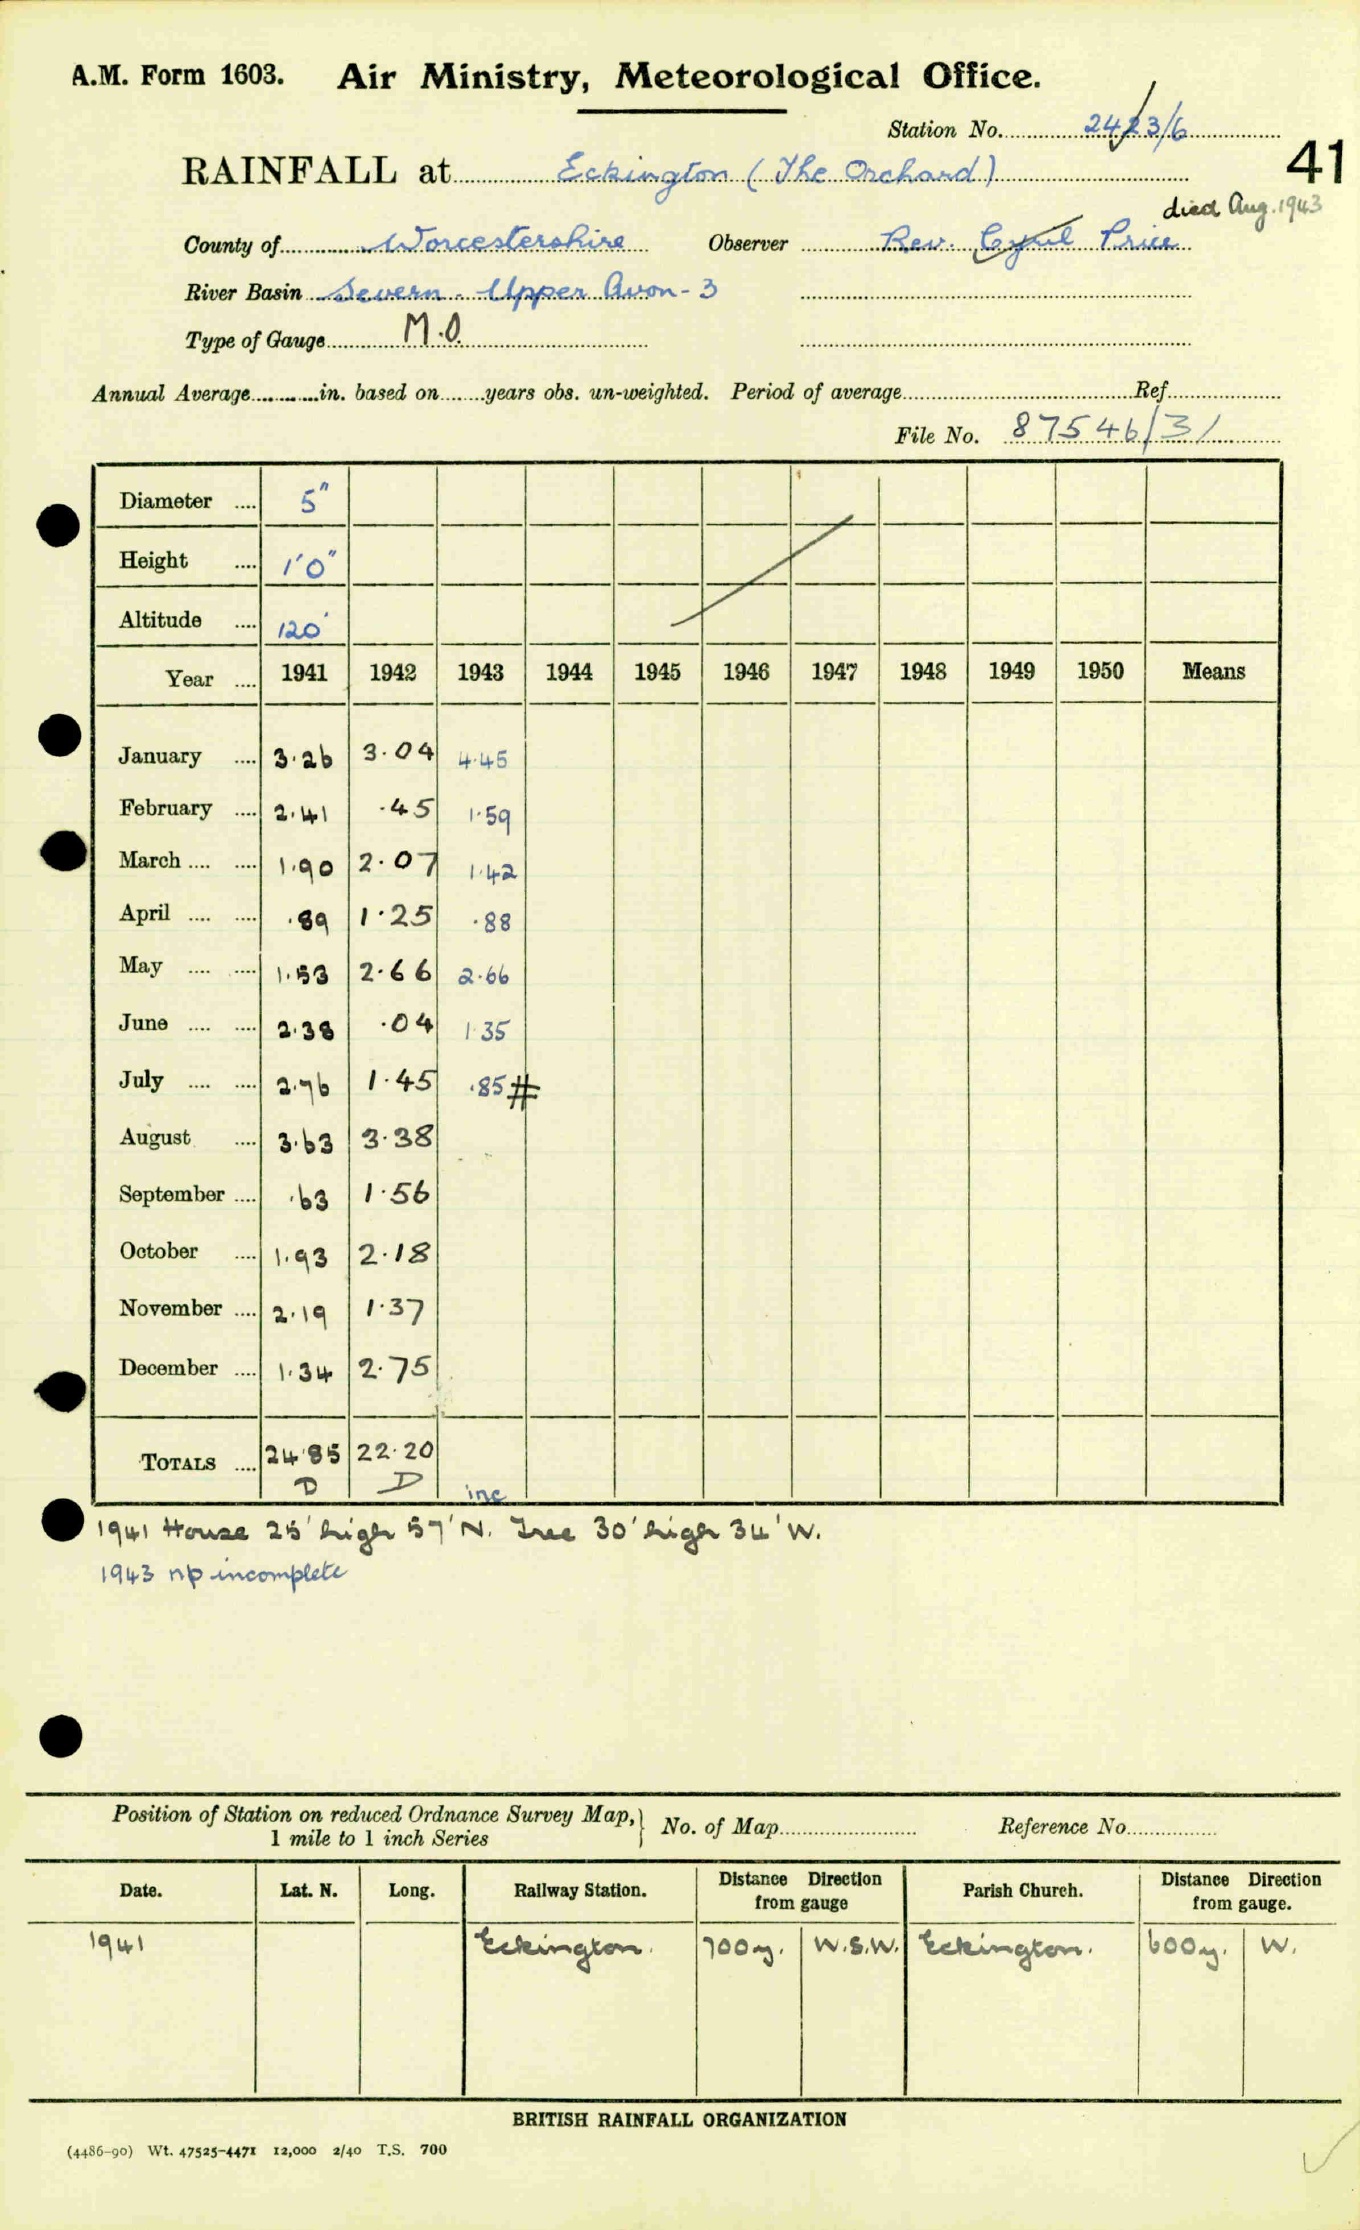 A.M. Form 1603. Air Ministry, Meteorological Office.
Station No. 2423/6
41
RAINFALL at Eckington (The Orchard)
died Aug. 1943
County of Worcestershire Observer Rev. Cyril Price
River Basin Severn - Upper Avon - 3
Type of Gauge M.O.
Annual Average in. based on years obs. un-weighted. Period of average Ref
File No. 87546/31
Diameter 5"
Height 1'0"
Altitude 120'
Year 1941 1942 1943 1944 1945 1946 1947 1948 1949 1950 Means
January 3.26 3.04 4.45
February 2.41 .45 1.59
March 1.90 2.07 1.42
April .89 1.25 .88
May 1.53 2.66 2.66
June 2.38 .04 1.35
July 2.76 1.45 .85 #
August 3.63 3.38
September .63 1.56
October 1.93 2.18
November 2.19 1.37
December 1.34 2.75
TOTALS 24.85 22.20
D D inc
1941 House 25' high 57' N. Tree 30' high 34' W.
1943 np incomplete
Position of Station on reduced Ordnance Survey Map, 1 mile to 1 inch Series } No. of Map Reference No.
Date. Lat. N. Long. Railway Station. Distance Direction from gauge Parish Church. Distance Direction from gauge.
1941 Eckington. 700y. W.S.W. Eckington. 600y. W.
BRITISH RAINFALL ORGANIZATION
(4486-90) Wt. 47525-4471 12,000 2/40 T.S. 700